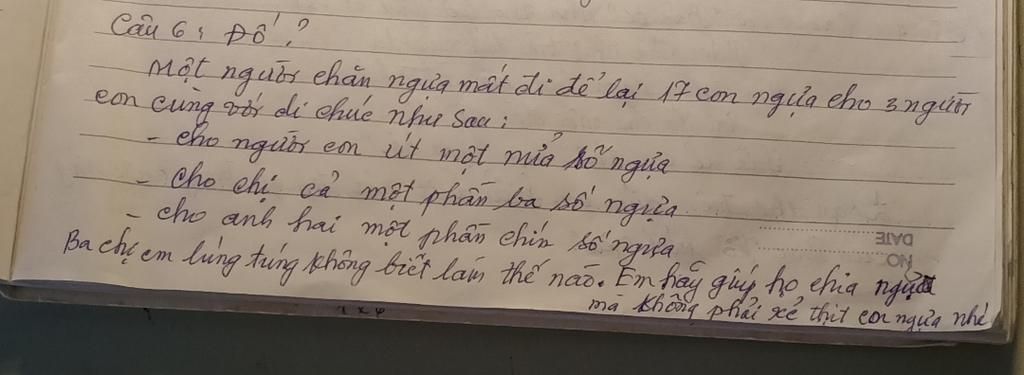 Câu 6: Đố?
Một người chăn ngựa mất đi để lại 17 con ngựa cho 3 người
con cùng với di chúc như sau:
- cho người con út một nửa số ngựa
- cho chị cả một phần ba số ngựa
- cho anh hai một phần chín số ngựa
Ba chị em lúng túng không biết làm thế nào. Em hãy giúp họ chia ngựa
mà không phải xẻ thịt con ngựa nhé
DATE
NO